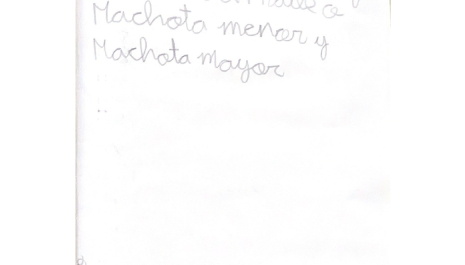 a
Machota menor y
Machota mayor